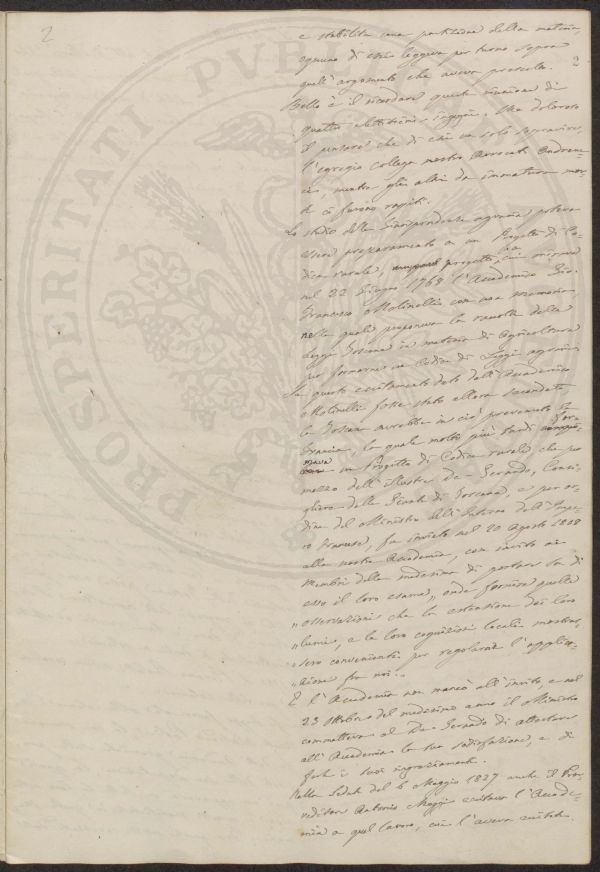 2
e stabilita una partizione della materia,
ognuno di essi leggeva per turno sopra
2
quell'argomento che aveva prescelto.
Bello è il ricordare questa riunione di
quattro elettissimi ingegni. Ma doloroso
il pensare che di essi un solo sopravvive,
l'egregio Collega nostro Avvocato Andreuc-
ci, mentre gli altri da immatura mor-
te ci furono rapiti.
Lo studio della Giurisprudenza agraria poteva
essere preparamento a un Progetto di Co-
dice rurale, progetto, a cui mirava
nel 22 Giugno 1768 l'Accademico Gio.
Francesco Molinelli con una memoria
nella quale proponeva la raccolta delle
Leggi Toscane in materia di Agricoltura
per formarne un Codice di Leggi agrarie
Se questo eccitamento dato dall'Accademico
Molinelli fosse stato allora secondato
la Toscana avrebbe in ciò prevenuto la
Francia, la quale molto più tardi for-
mava un Progetto di Codice rurale che per
mezzo dell'illustre De Gerando, Consi-
gliere della Giunta di Toscana, e per or-
dine del Ministro dell'Interno dell'Impe-
ro Francese, fu inviato nel 20 Agosto 1808
alla nostra Accademia, con invito ai
Membri della medesima di portare su di
esso il loro esame „ onde fornire quelle
„ osservazioni che la estensione dei loro
„ lumi, e le loro cognizioni locali mostras-
„ sero convenienti per regolarne l'applica-
„ zione fra noi. „
E l'Accademia non mancò all'invito, e nel
23 Ottobre del medesimo anno il Ministro
commetteva al De Gerando di attestare
all'Accademia la sua sodisfazione, e di
farle i suoi ringraziamenti.
Nella Seduta del 6 Maggio 1827 anche il Prov-
veditore Antonio Maggi eccitava l'Accade-
mia a quel lavoro, cui l'aveva
PROSPERITATI PVBLICAE